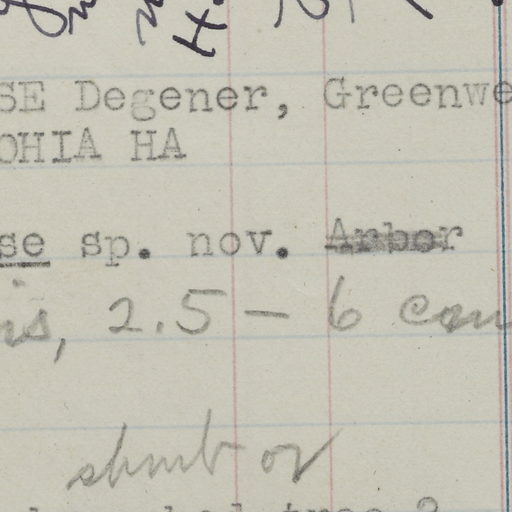 SE Degener, Greenwe
OHIA HA
se sp. nov. Arbor
is, 2.5 – 6 cm
shrub or
tree ?